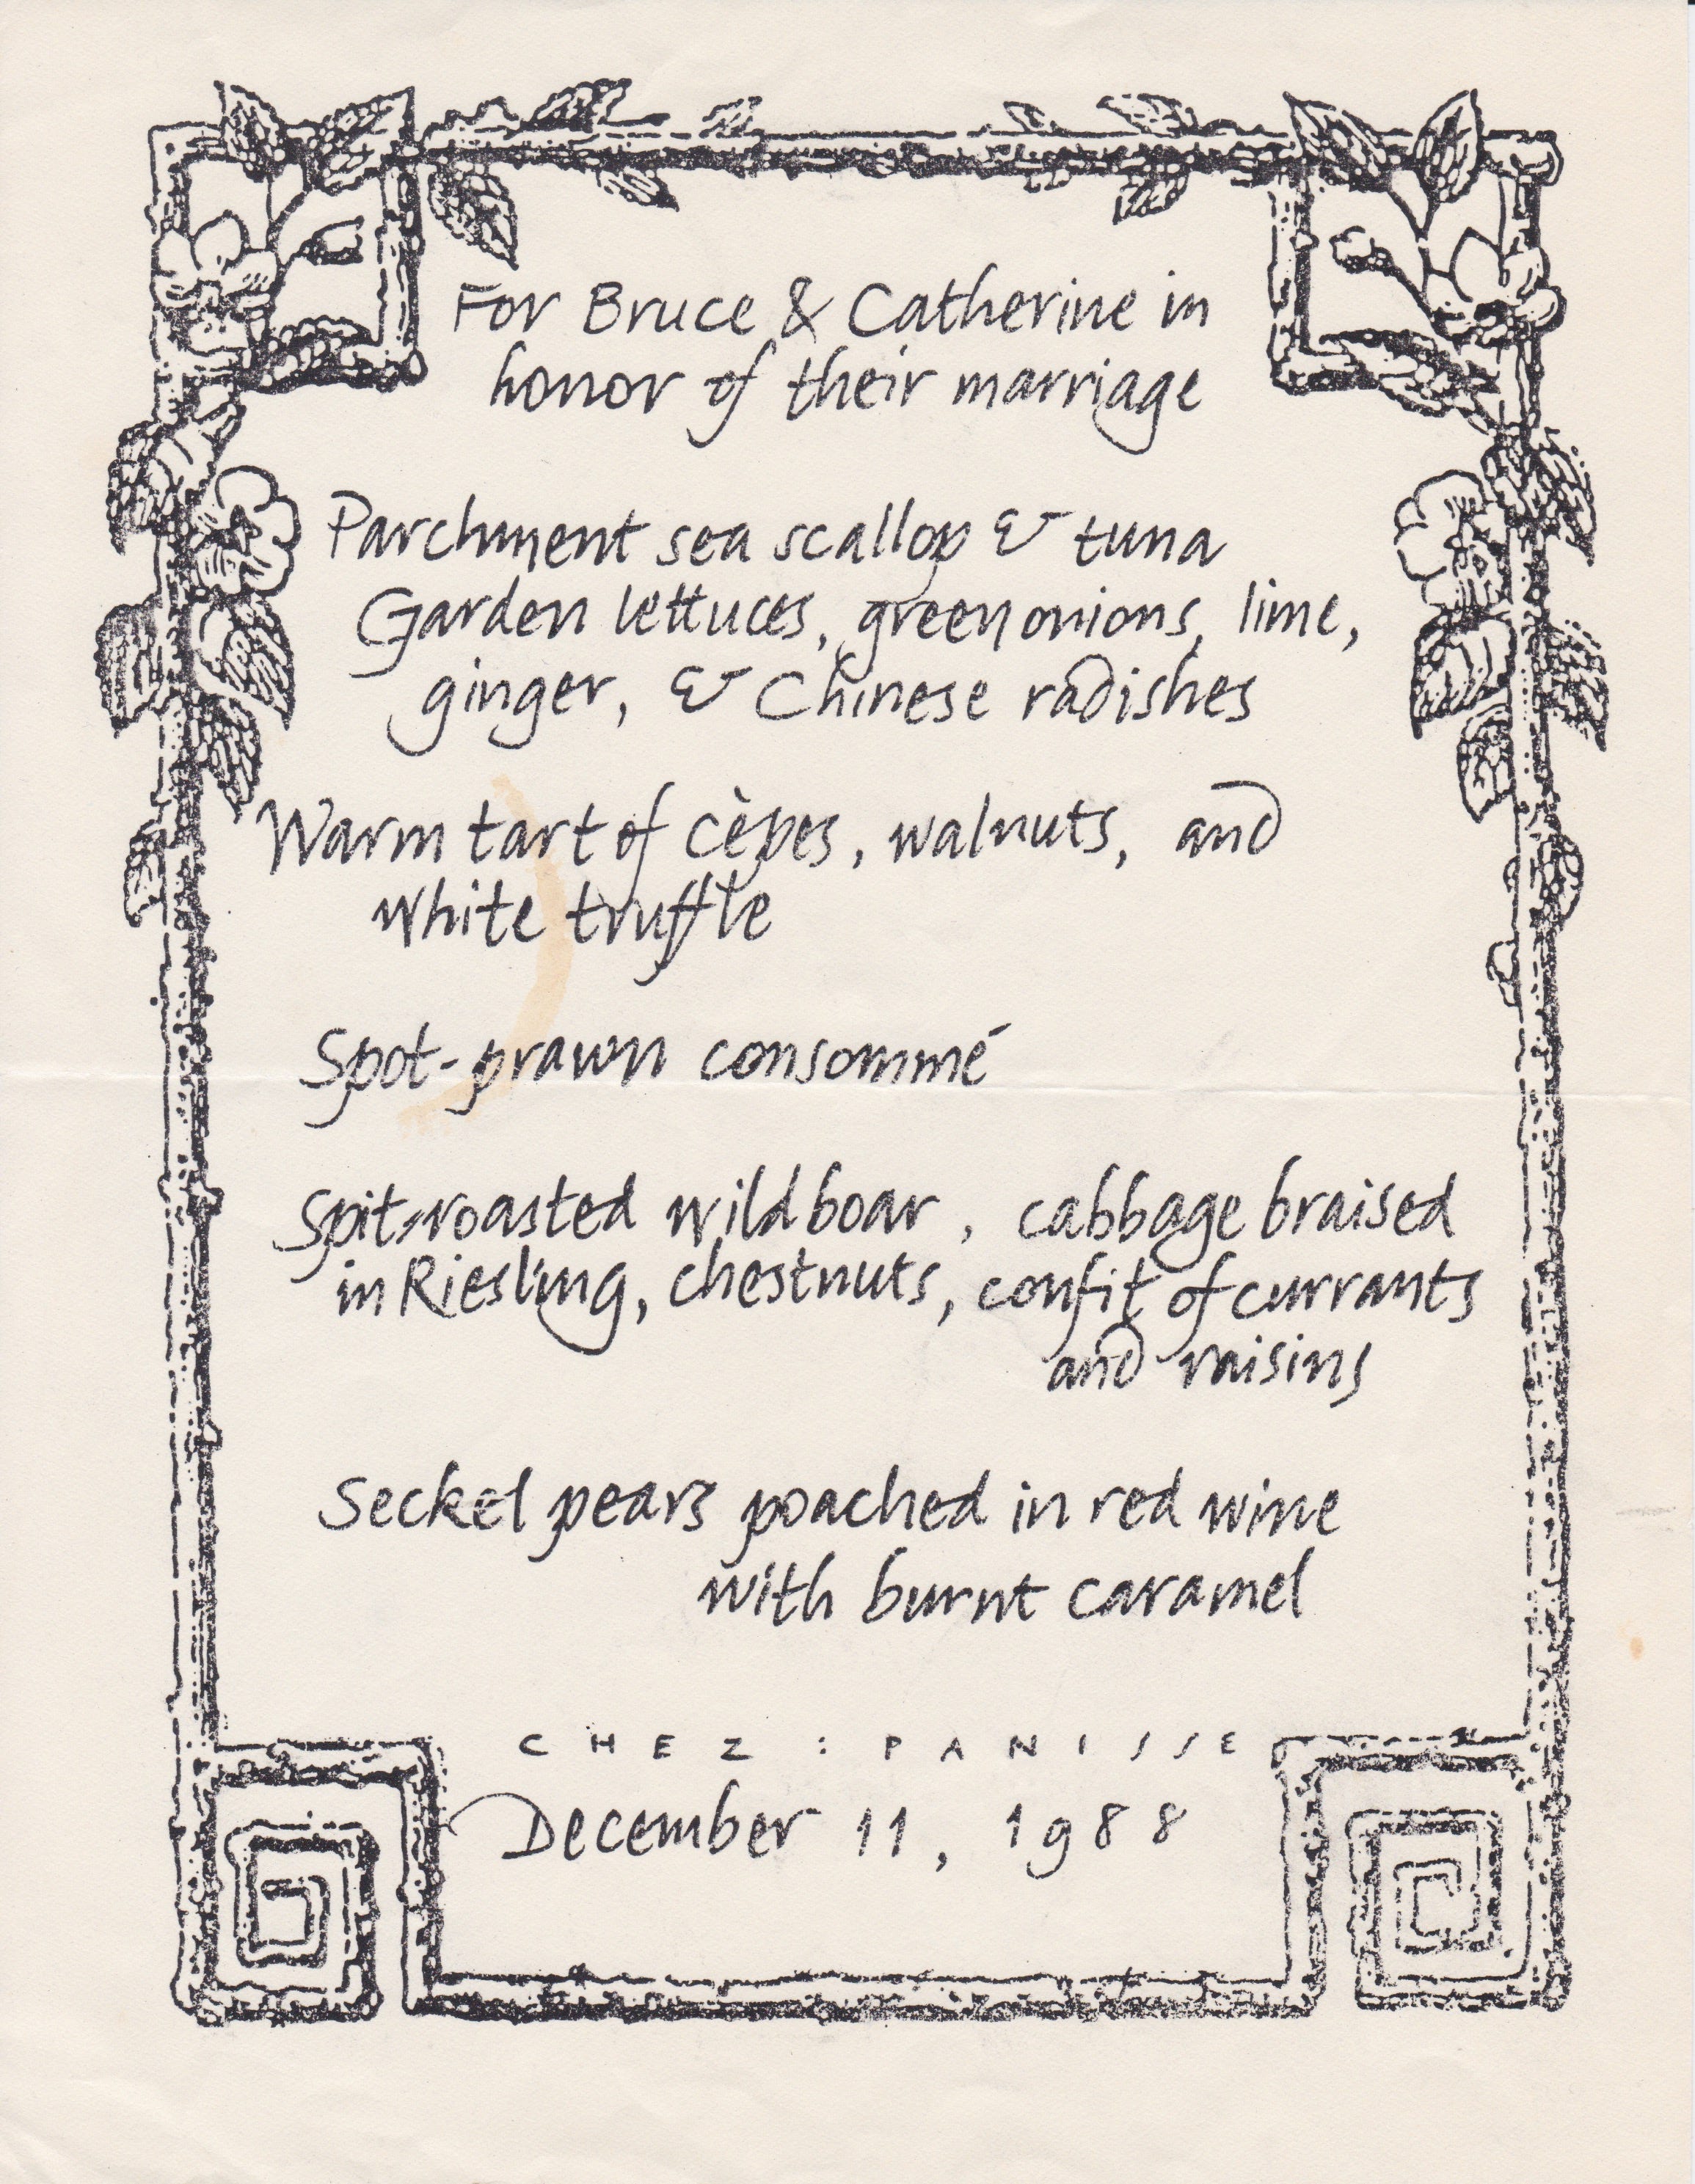 For Bruce & Catherine in
honor of their marriage
Parchment sea scallop & tuna
Garden lettuces, green onions, lime,
ginger, & Chinese radishes
Warm tart of cèpes, walnuts, and
white truffle
Spot-prawn consommé
Spit-roasted wild boar, cabbage braised
in Riesling, chestnuts, confit of currants
and raisins
Seckel pears poached in red wine
with burnt caramel
CHEZ : PANISSE
December 11, 1988